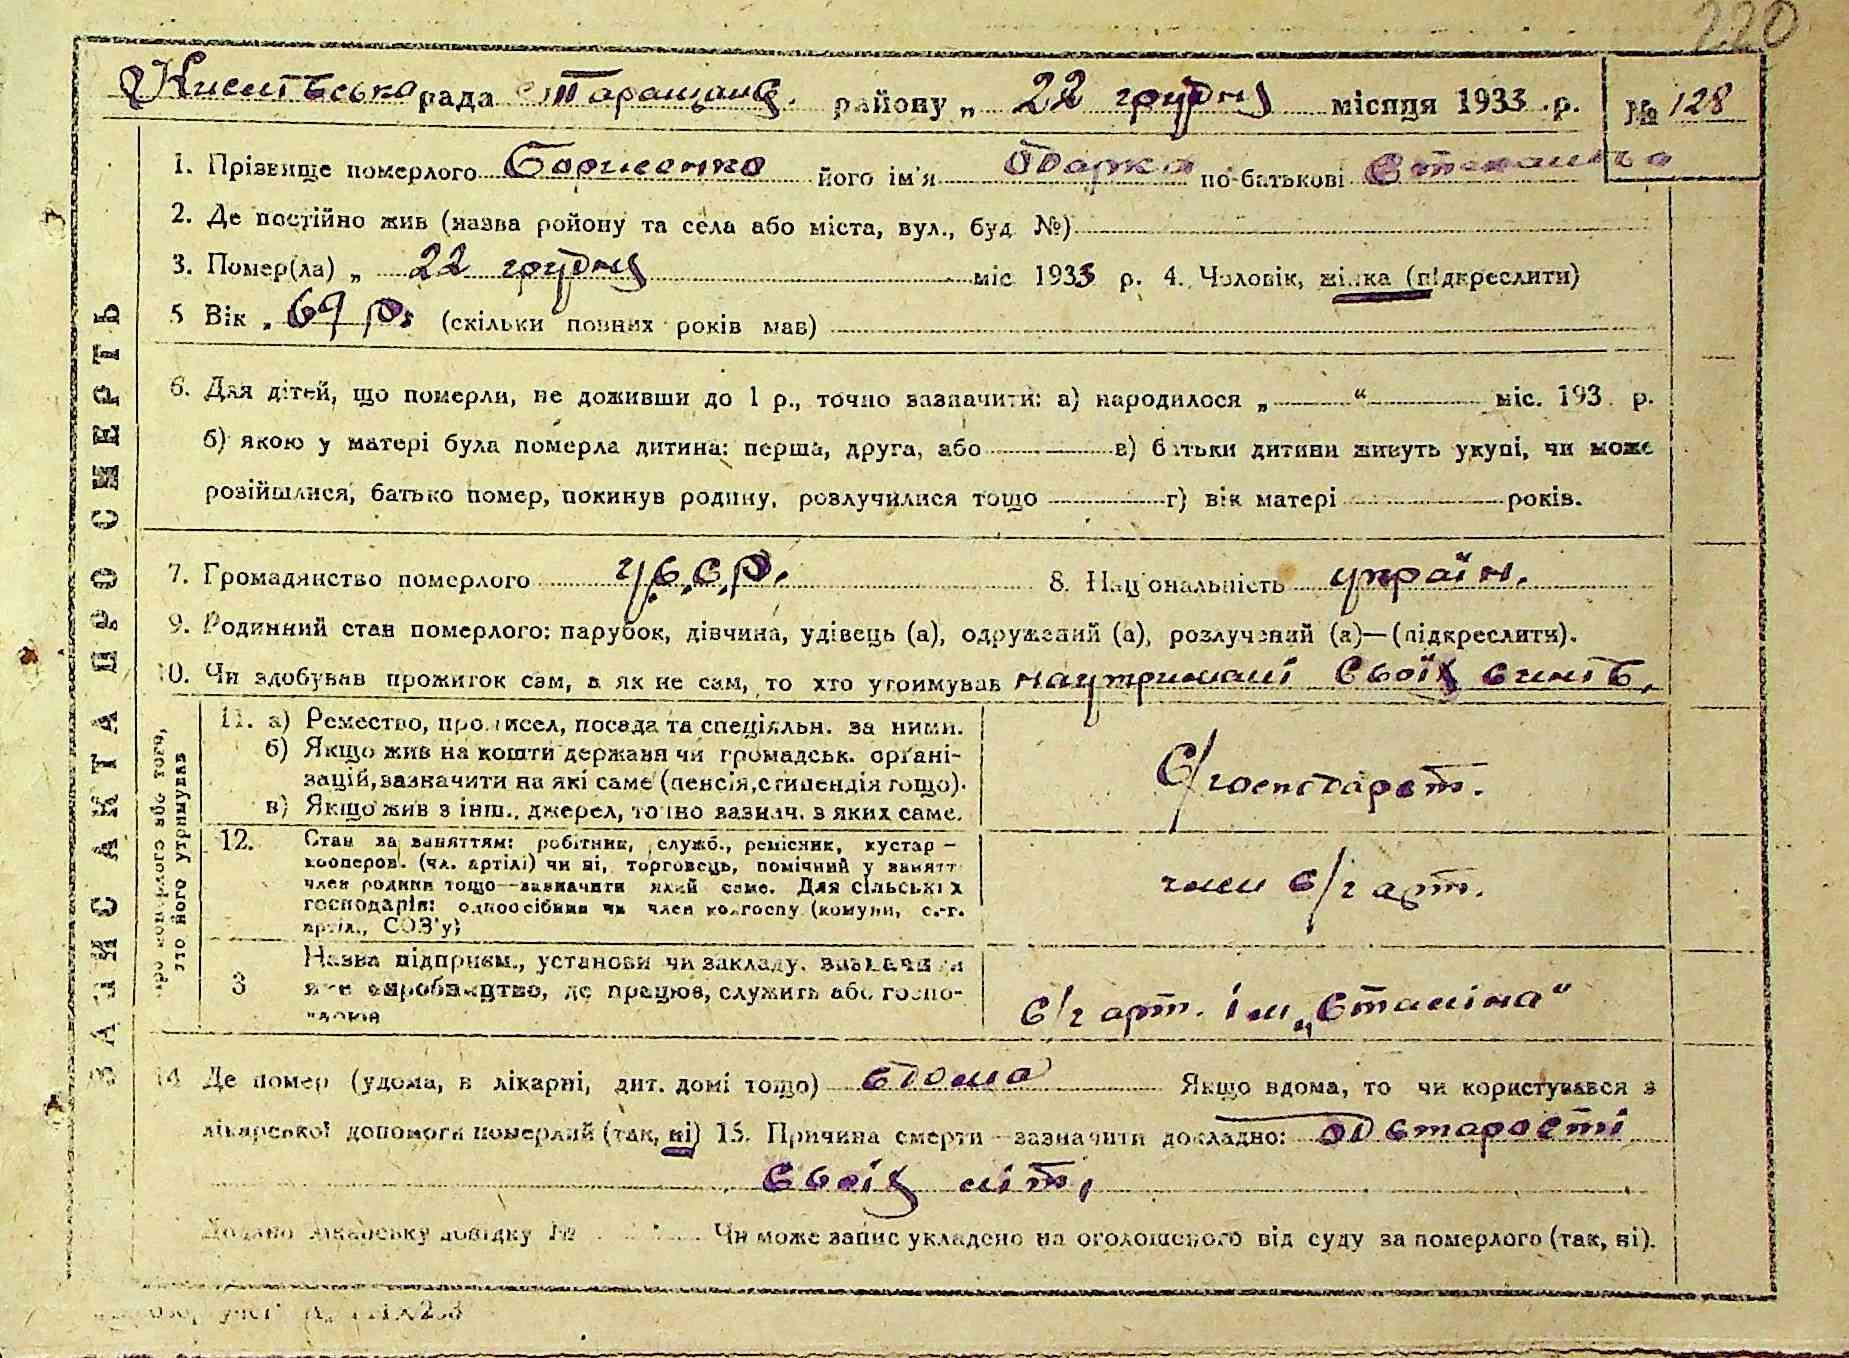 220
Кислівсько рада Таращанс. району „ 22 грудня місяця 1933 р. № 128
1. Прізвище померлого Борисенко його ім'я Одарка по-батькові Степанівна
2. Де постійно жив (назва ройону та села або міста, вул., буд №)
3. Помер(ла) „ 22 грудня міс 1933 р. 4. Чоловік, жінка (підкреслити)
5 Вік „ 69 р. (скільки повних років мав)
6. Для дітей, що померли, не доживши до 1 р., точно зазначити: а) народилося „ “ міс. 193 р.
б) якою у матері була померла дитина: перша, друга, або в) батьки дитини живуть укупі, чи може
розійшлися, батько помер, покинув родину, розлучилися тощо г) вік матері років.
7. Громадянство померлого У.С.С.Р. 8. Національність україн.
9. Родинний стан померлого: парубок, дівчина, удівець (а), одружений (а), розлучений (а)—(підкреслити).
10. Чи здобував прожиток сам, а як не сам, то хто утримував на утриманні своїх синів.
ЗАПИС АКТА ПРО СМЕРТЬ
Про померлого або того,
хто його утримував
11. а) Ремество, промисел, посада та спеціяльн. за ними.
б) Якщо жив на кошти держави чи громадськ. органі-
зацій, зазначити на які саме (пенсія, стипендія тощо).
в) Якщо жив з інш., джерел, точно вазнач. з яких саме.
С/господарст.
12. Стан за заняттям: робітник, служб., ремісник, кустар –
кооперов. (чл. артілі) чи ні, торговець, помічний у занятт
член родини тощо—зазначити який саме. Для сільських
господарів: одноосібник чи член колгоспу (комуни, с.-г.
артіл., СОЗ'у)
член с/г арт.
3 Назва підприєм., установи чи закладу, зазначити
яке виробництво, де працює, служить або госпо-
с/г арт. ім „Сталіна“
14 Де помер (удома, в лікарні, дит. домі тощо) вдома Якщо вдома, то чи користувався з
лікарської допомоги померлий (так, ні) 15. Причина смерти—зазначити докладно: од старості
своїх літ.
Додано лікарську довідку № Чи може запис укладено на оголошеного від суду за померлого (так, ні).